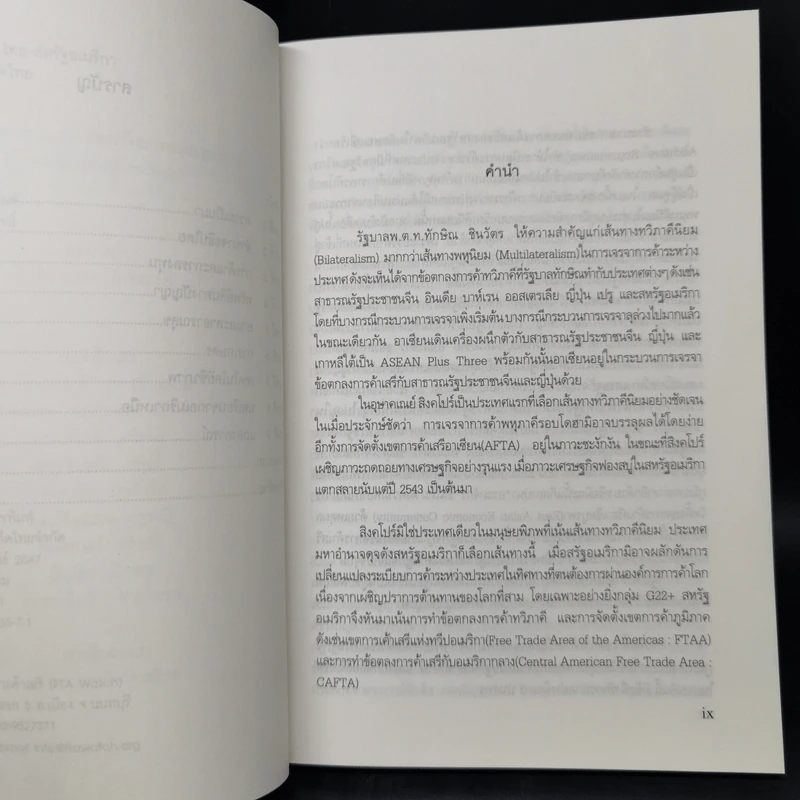 สารบัญ
คำนำ
รัฐบาลพ.ต.ท.ทักษิณ ชินวัตร ให้ความสำคัญแก่เส้นทางทวิภาคีนิยม
(Bilateralism) มากกว่าเส้นทางพหุนิยม (Multilateralism)ในการเจรจาการค้าระหว่าง
ประเทศ ดังจะเห็นได้จากข้อตกลงการค้าทวิภาคีที่รัฐบาลทักษิณทำกับประเทศต่างๆ ดังเช่น
สาธารณรัฐประชาชนจีน อินเดีย บาห์เรน ออสเตรเลีย ญี่ปุ่น เปรู และสหรัฐอเมริกา
โดยที่บางกรณีกระบวนการเจรจาเพิ่งเริ่มต้น บางกรณีกระบวนการเจรจาลุล่วงไปมากแล้ว
ในขณะเดียวกัน อาเซียนเดินเครื่องผนึกตัวกับสาธารณรัฐประชาชนจีน ญี่ปุ่น และ
เกาหลีใต้เป็น ASEAN Plus Three พร้อมกันนั้นอาเซียนอยู่ในกระบวนการเจรจา
ข้อตกลงการค้าเสรีกับสาธารณรัฐประชาชนจีนและญี่ปุ่นด้วย
ในอุษาคเณย์ สิงคโปร์เป็นประเทศแรกที่เลือกเส้นทางทวิภาคีนิยมอย่างชัดเจน
ในเมื่อประจักษ์ชัดว่า การเจรจาการค้าพหุภาคีรอบโดฮามิอาจบรรลุผลได้โดยง่าย
อีกทั้งการจัดตั้งเขตการค้าเสรีอาเซียน(AFTA) อยู่ในภาวะชะงักงัน ในขณะที่สิงคโปร์
เผชิญภาวะถดถอยทางเศรษฐกิจอย่างรุนแรง เมื่อภาวะเศรษฐกิจฟองสบู่ในสหรัฐอเมริกา
แตกสลายนับแต่ปี 2543 เป็นต้นมา
สิงคโปร์มิใช่ประเทศเดียวในมนุษยพิภพที่เน้นเส้นทางทวิภาคีนิยม ประเทศ
มหาอำนาจดุจดังสหรัฐอเมริกาก็เลือกเส้นทางนี้ เมื่อสรัฐอเมริกามิอาจผลักดันการ
เปลี่ยนแปลงระเบียบการค้าระหว่างประเทศในทิศทางที่ตนต้องการผ่านองค์การการค้าโลก
เนื่องจากเผชิญปราการต้านทานของโลกที่สาม โดยเฉพาะอย่างยิ่งกลุ่ม G22+ สหรัฐ
อเมริกาจึงหันมาเน้นการทำข้อตกลงการค้าทวิภาคี และการจัดตั้งเขตการค้าภูมิภาค
ดังเช่นเขตการเค้าเสรีแห่งทวีปอเมริกา(Free Trade Area of the Americas : FTAA)
และการทำข้อตกลงการค้าเสรีกับอเมริกากลาง(Central American Free Trade Area :
CAFTA)
ix